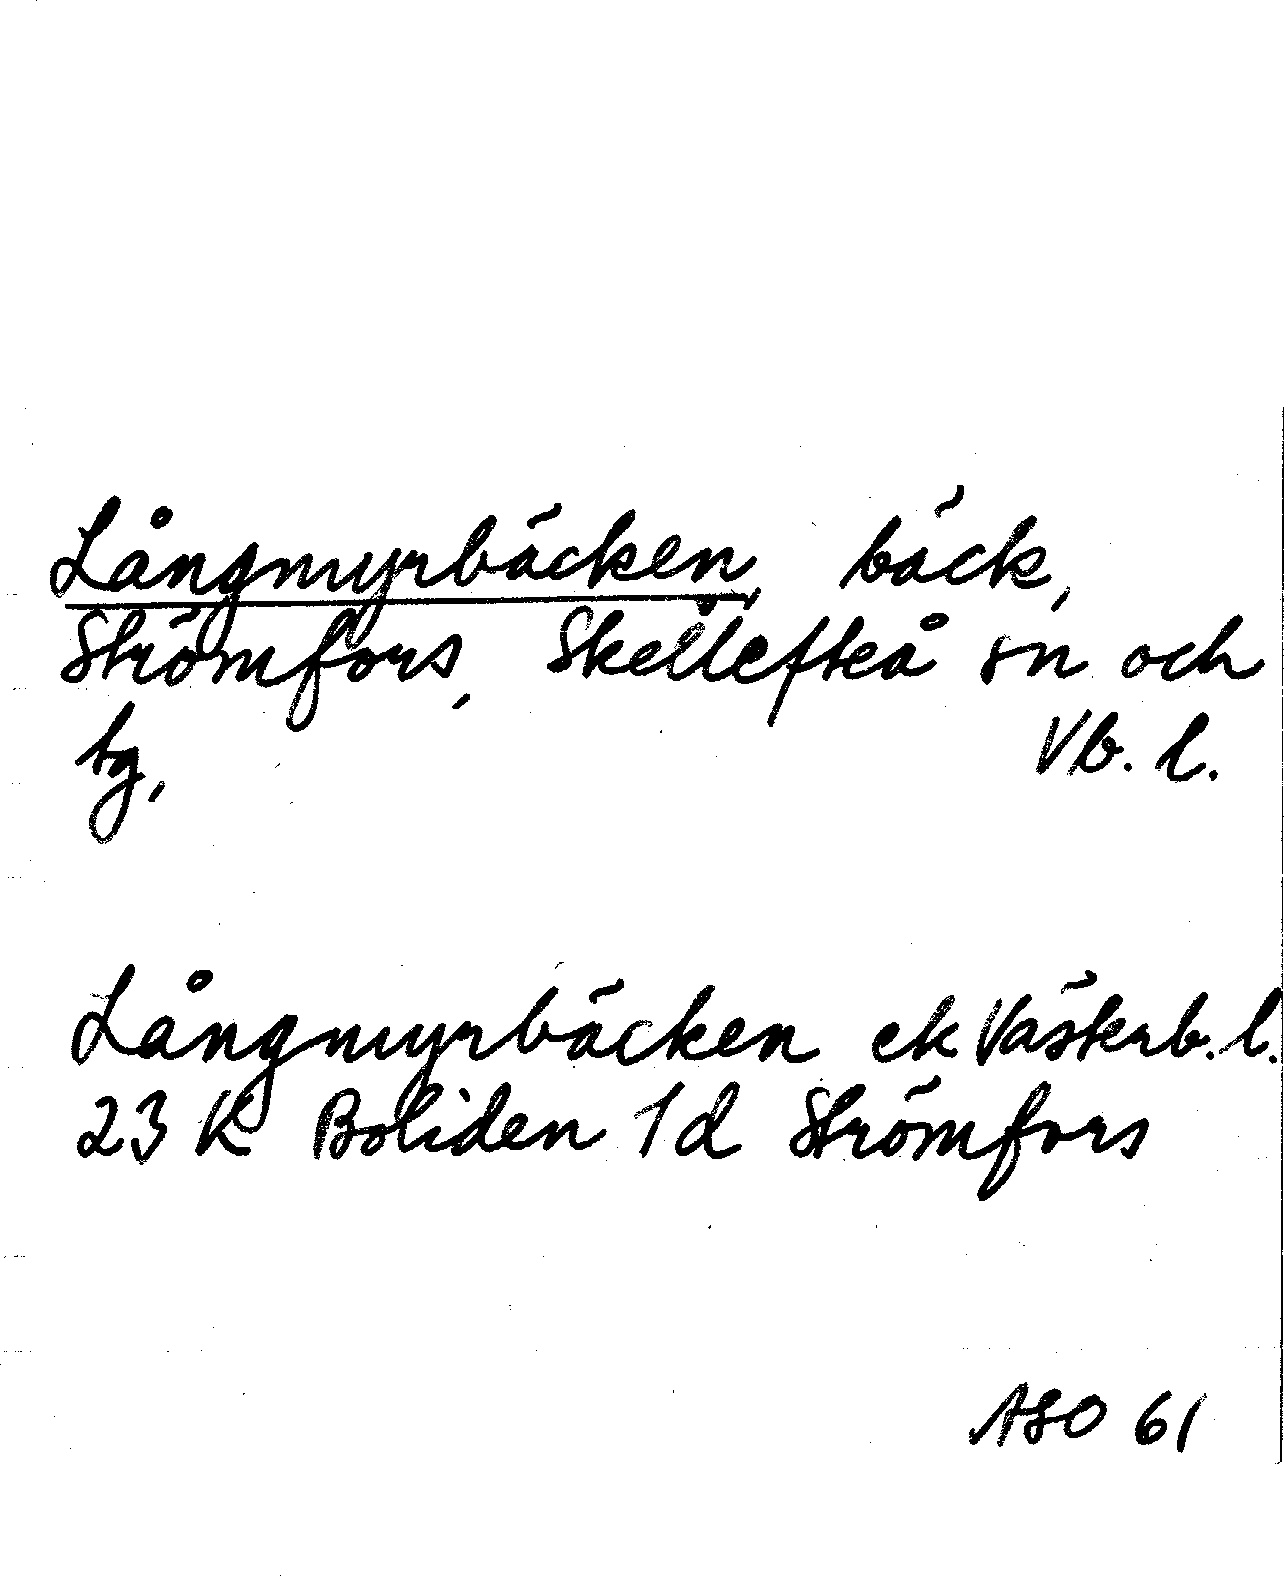 Långmyrbäcken, bäck,
Strömfors, Skellefteå sn och
tg, Vb. l.
Långmyrbäcken ek Västerb. l.
23 K Boliden 1 d Strömfors
ASO 61